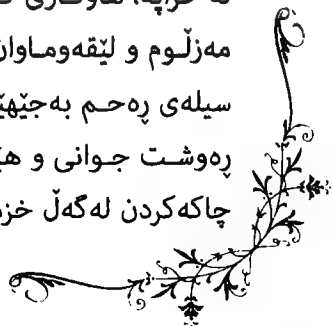 مەزڵـوم و لێقەومـاوان
سیلەی ڕەحـم بەجێهێ
ڕەوشـت جـوانی و هێ
چاکەکردن لەگەڵ خز